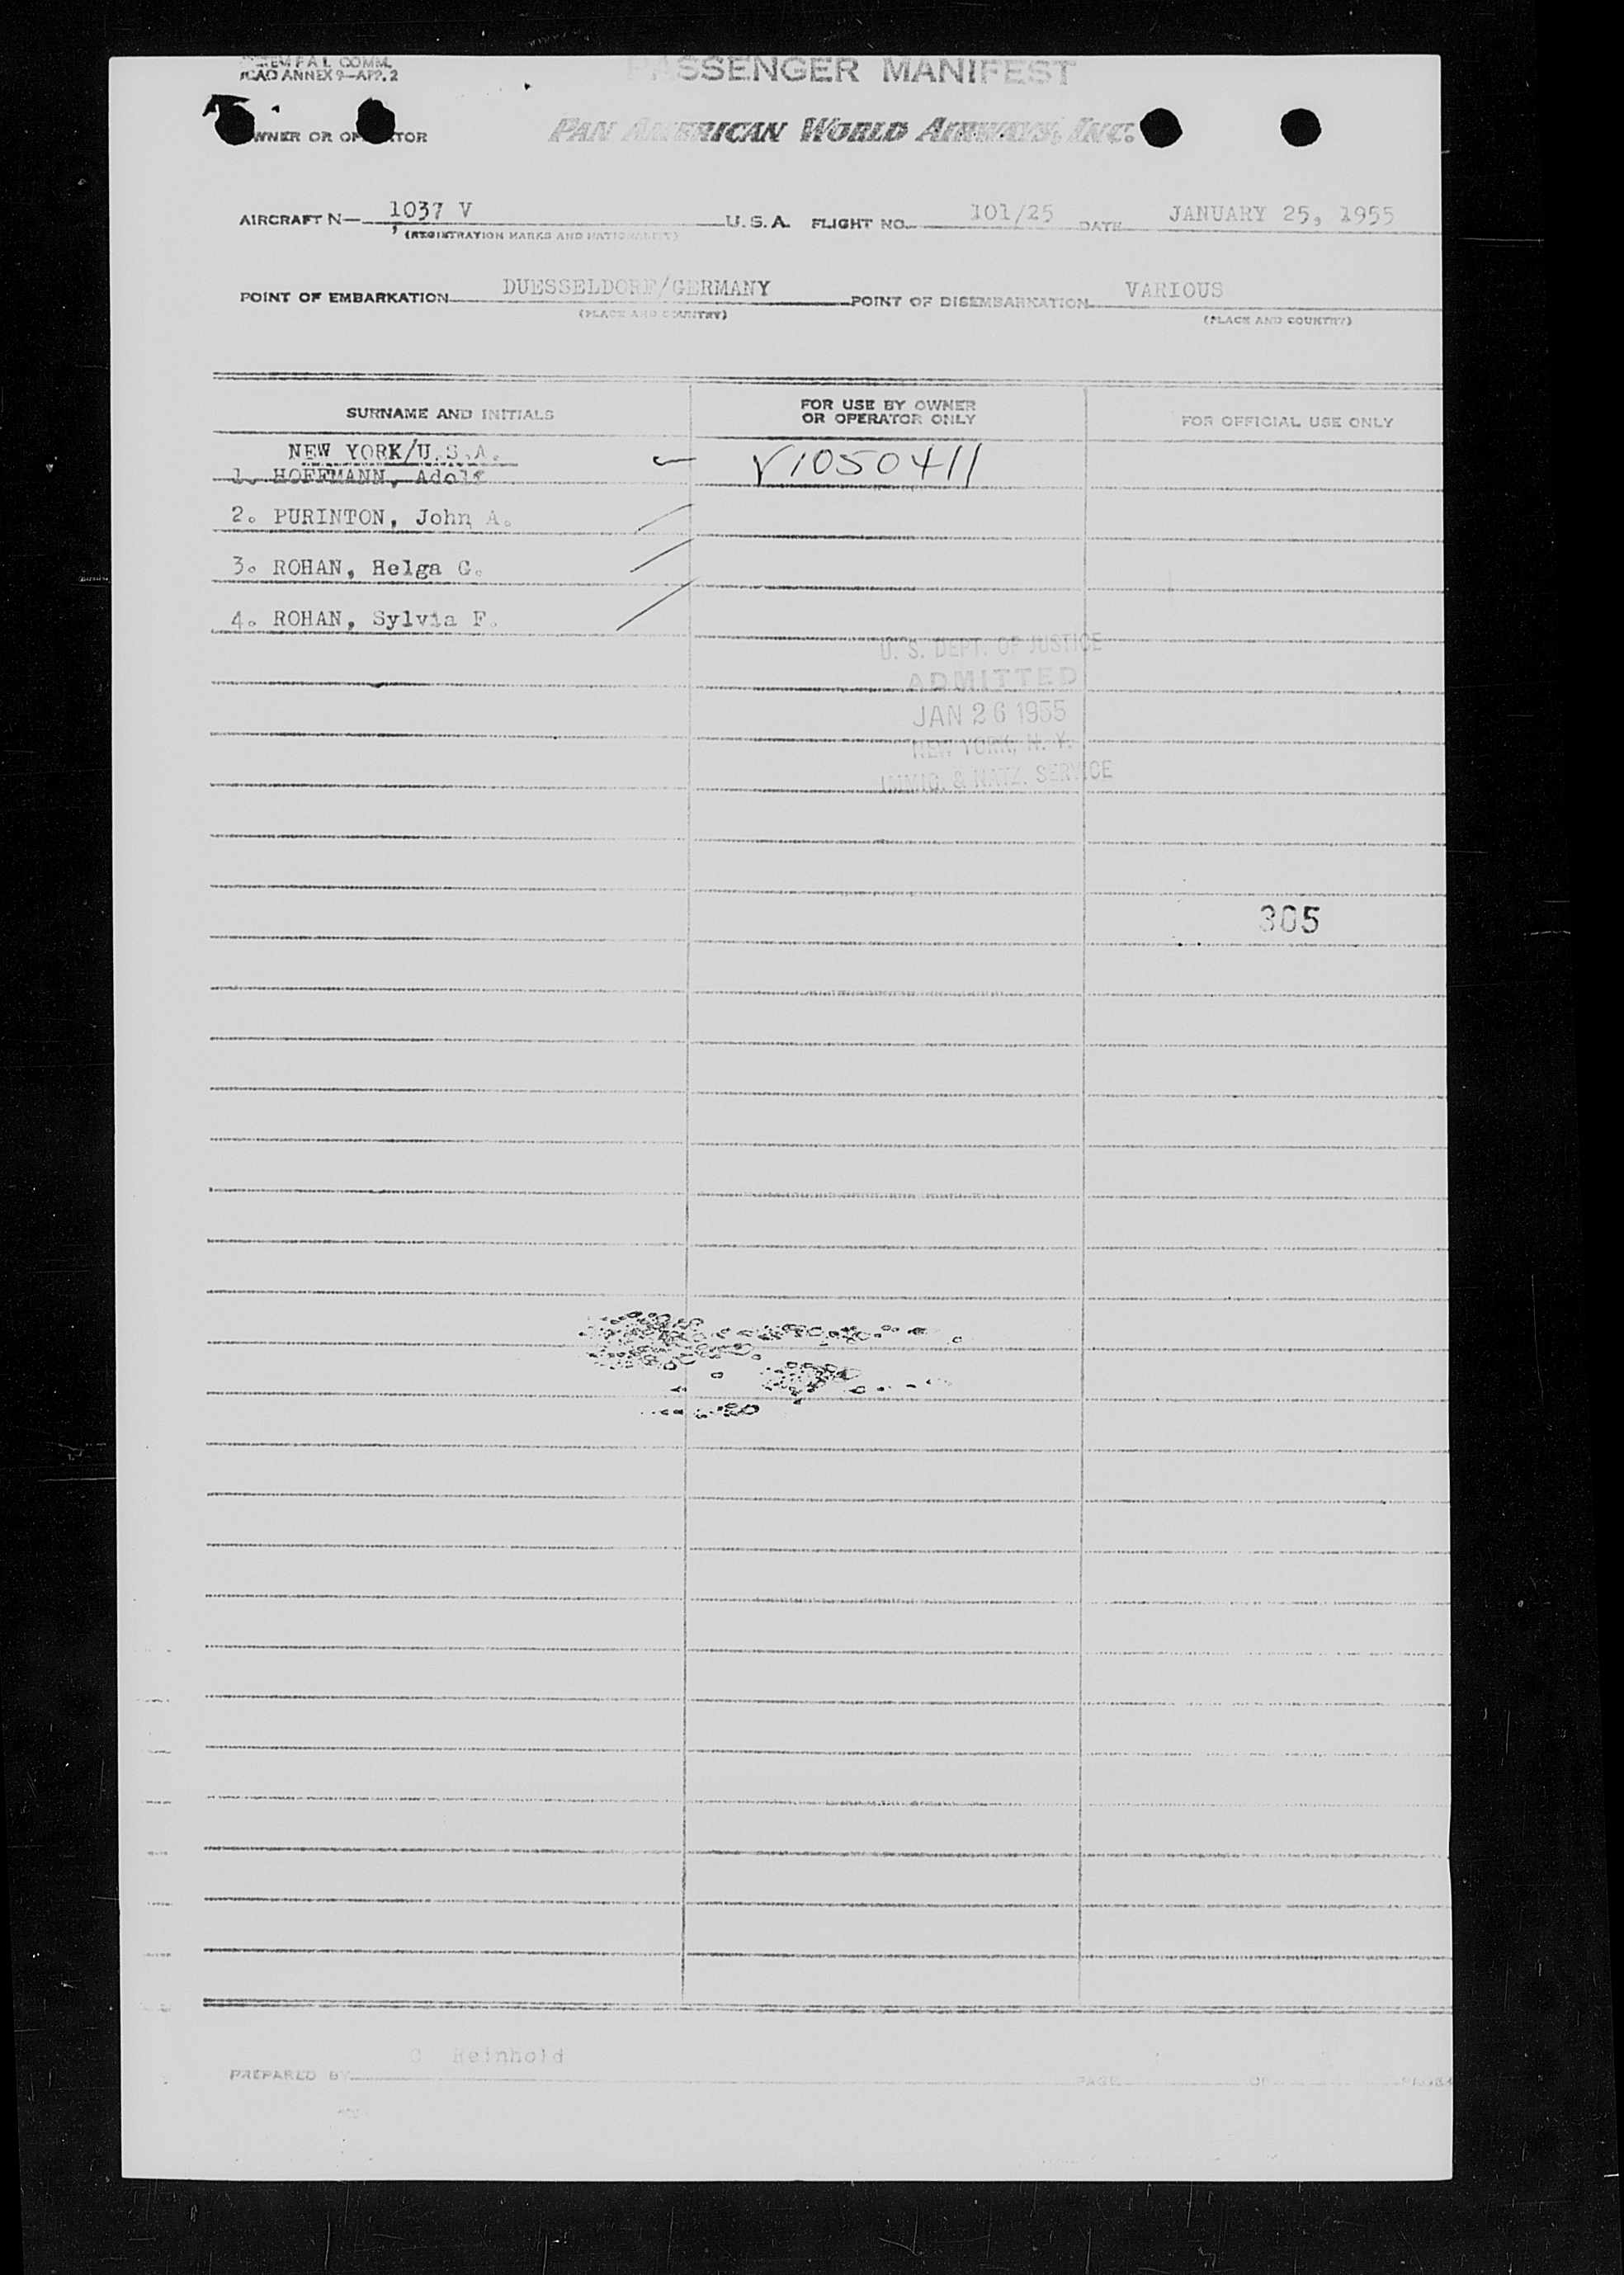 FAL COMM.
ICAO ANNEX 9—APP. 2
PASSENGER MANIFEST
OWNER OR OPERATOR
PAN AMERICAN WORLD AIRWAYS, INC.
AIRCRAFT N— 1037 V U. S. A. FLIGHT NO. 101/25 DATE JANUARY 25, 1955
(REGISTRATION MARKS AND NATIONALITY)
POINT OF EMBARKATION DUESSELDORF/GERMANY POINT OF DISEMBARKATION VARIOUS
(PLACE AND COUNTRY) (PLACE AND COUNTRY)
SURNAME AND INITIALS FOR USE BY OWNER OR OPERATOR ONLY FOR OFFICIAL USE ONLY
NEW YORK/U.S.A.
1. HOFFMANN, Adolf V1050411
2. PURINTON, John A.
3. ROHAN, Helga G.
4. ROHAN, Sylvia F.
U. S. DEPT. OF JUSTICE
ADMITTED
JAN 26 1955
NEW YORK, N. Y.
IMMIG. & NATZ. SERVICE
305
Reinhold
PREPARED BY PAGE OF PAGES